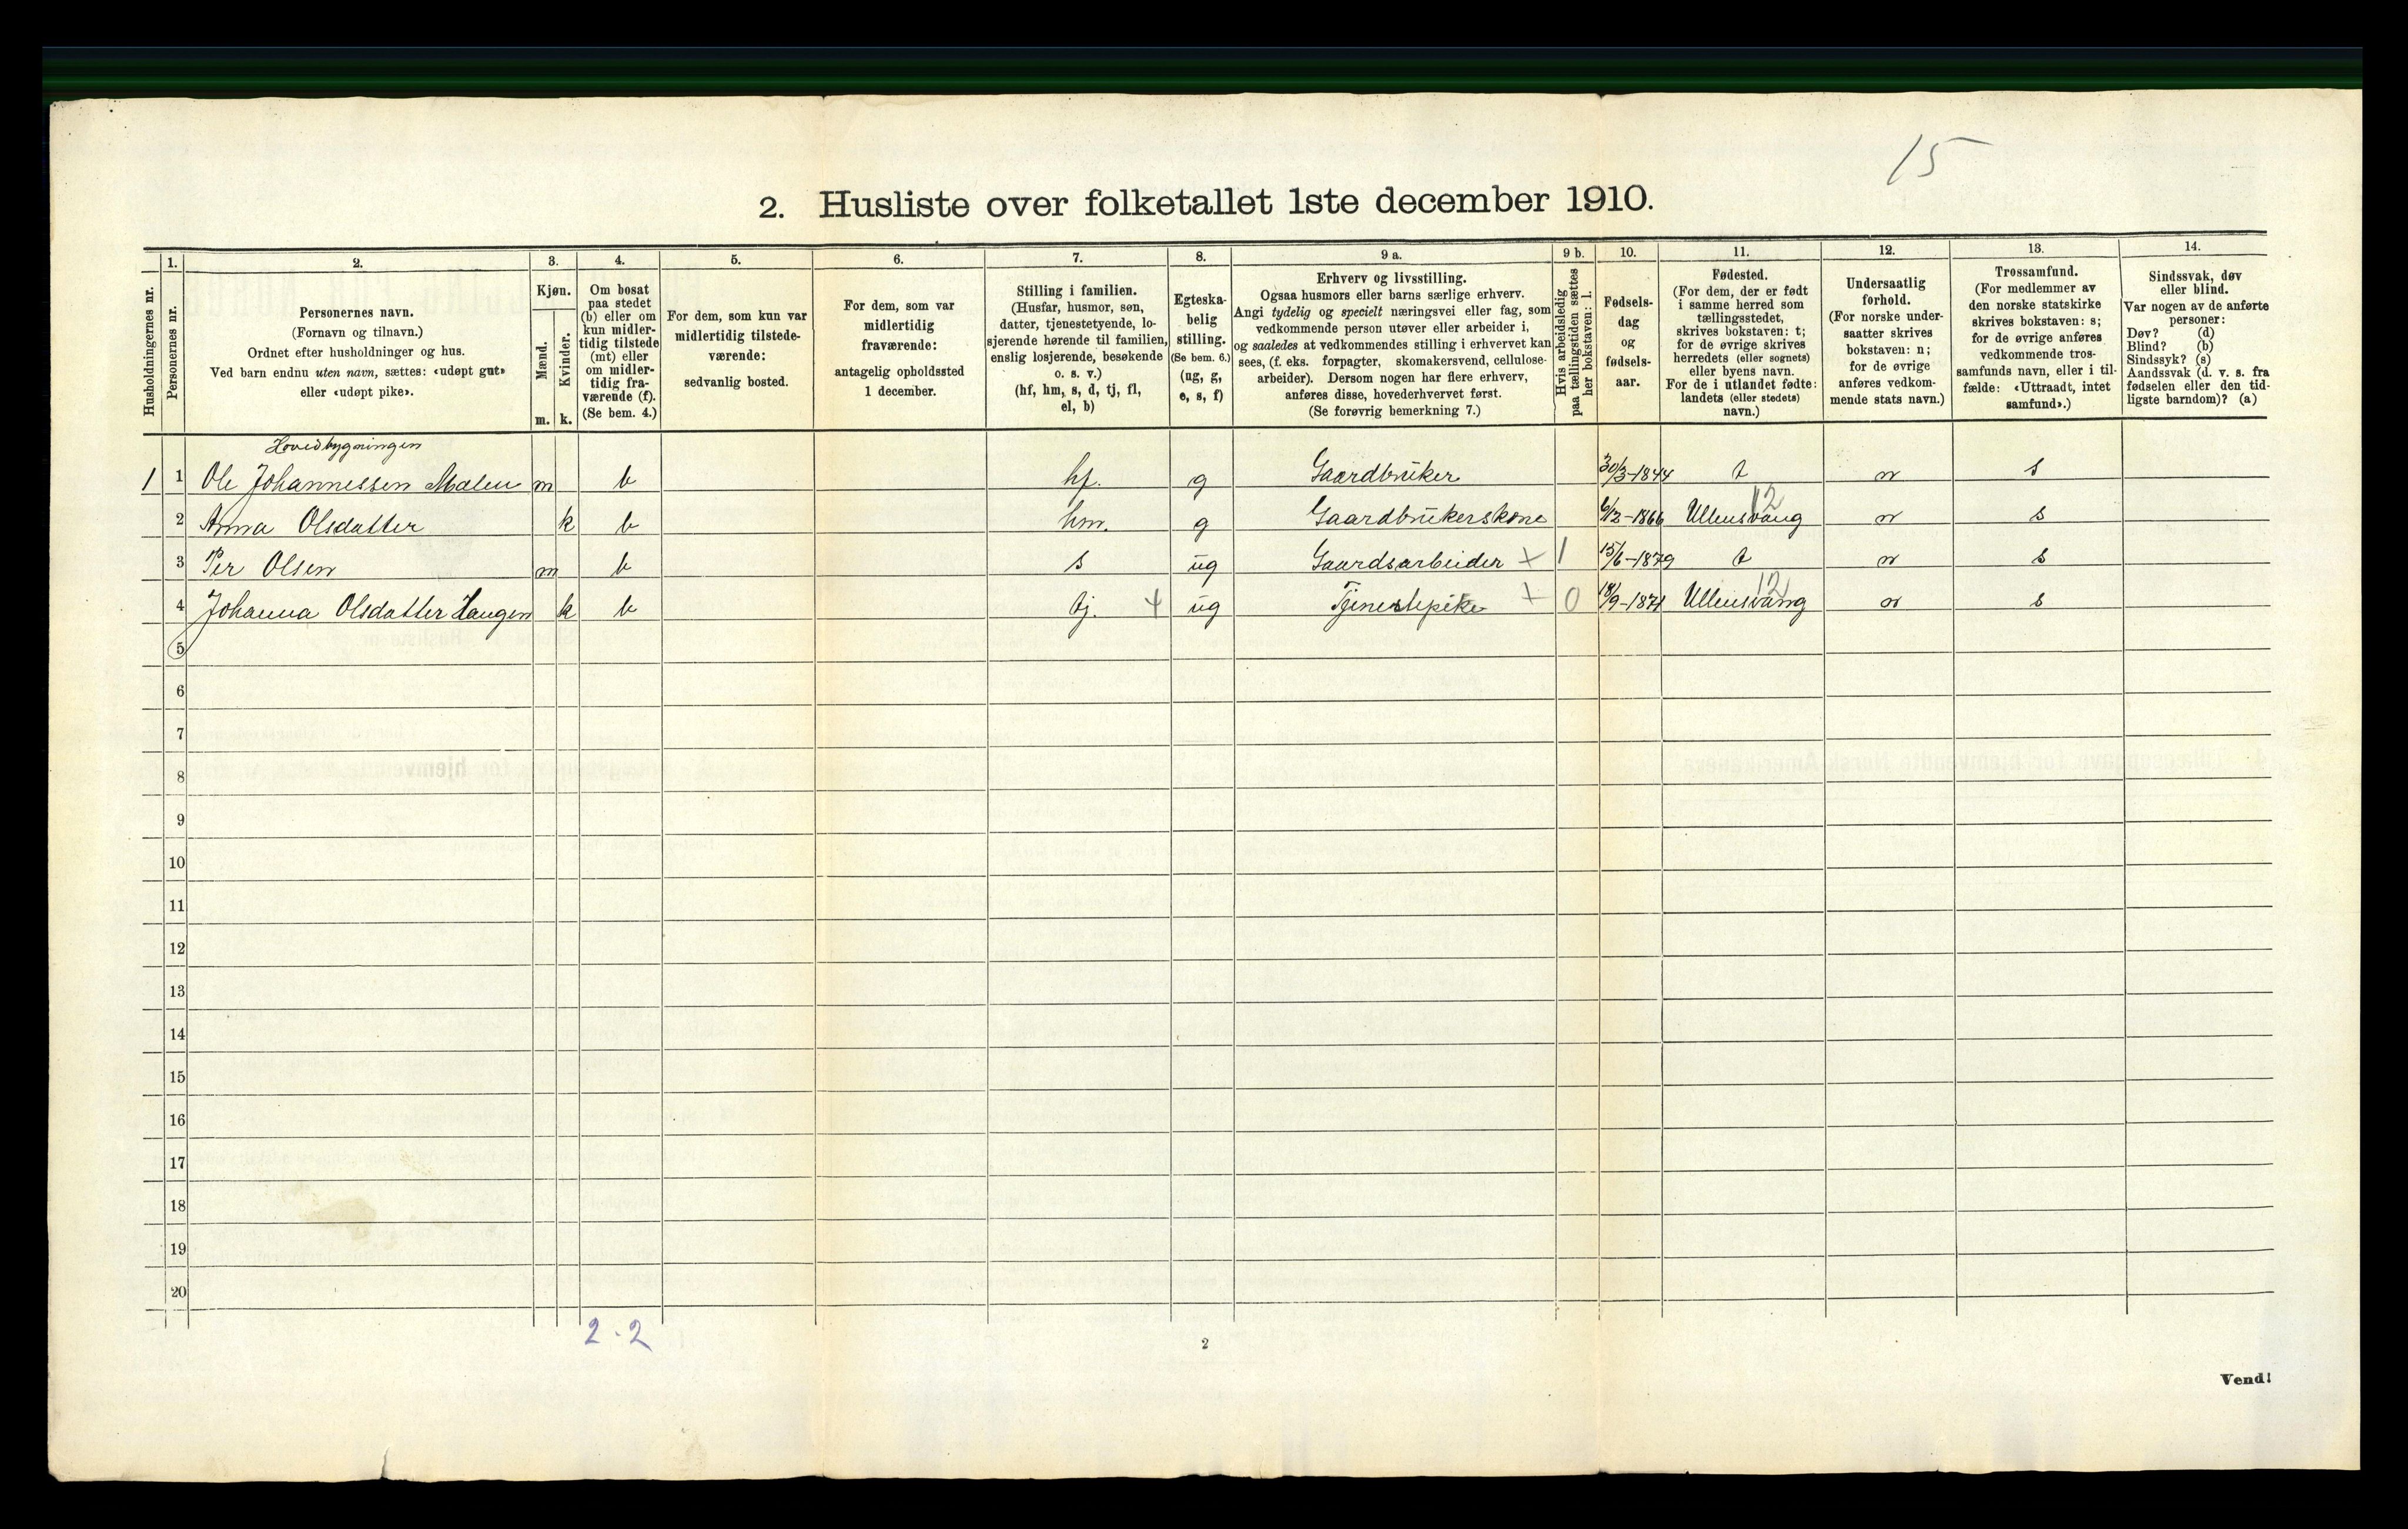 15
2. Husliste over folketallet 1ste december 1910.
Husholdningernes nr.
1.
Personernes nr.
2.
Personernes navn.
(Fornavn og tilnavn.)
Ordnet efter husholdninger og hus.
Ved barn endnu uten navn, sættes: «udøpt gut»
eller «udøpt pike».
3.
Kjøn.
Mænd.
m.
Kvinder.
k.
4.
Om bosat
paa stedet
(b) eller om
kun midler-
tidig tilstede
(mt) eller
om midler-
tidig fra-
værende (f).
(Se bem. 4.)
5.
For dem, som kun var
midlertidig tilstede-
værende:
sedvanlig bosted.
6.
For dem, som var
midlertidig
fraværende:
antagelig opholdssted
1 december.
7.
Stilling i familien.
(Husfar, husmor, søn,
datter, tjenestetyende, lo-
sjerende hørende til familien,
enslig losjerende, besøkende
o. s. v.)
(hf, hm, s, d, tj, fl,
el, b)
8.
Egteska-
belig
stilling.
(Se bem. 6.)
(ug, g,
e, s, f)
9 a.
Erhverv og livsstilling.
Ogsaa husmors eller barns særlige erhverv.
Angi tydelig og specielt næringsvei eller fag, som
vedkommende person utøver eller arbeider i,
og saaledes at vedkommendes stilling i erhvervet kan
sees, (f. eks. forpagter, skomakersvend, cellulose-
arbeider). Dersom nogen har flere erhverv,
anføres disse, hovederhvervet først.
(Se forøvrig bemerkning 7.)
9 b.
Hvis arbeidsledig
paa tællingstiden sættes
her bokstaven: l.
10.
Fødsels-
dag
og
fødsels-
aar.
11.
Fødested.
(For dem, der er født
i samme herred som
tællingsstedet,
skrives bokstaven: t;
for de øvrige skrives
herredets (eller sognets)
eller byens navn.
For de i utlandet fødte:
landets (eller stedets)
navn.)
12.
Undersaatlig
forhold.
(For norske under-
saatter skrives
bokstaven: n;
for de øvrige
anføres vedkom-
mende stats navn.)
13.
Trossamfund.
(For medlemmer av
den norske statskirke
skrives bokstaven: s;
for de øvrige anføres
vedkommende tros-
samfunds navn, eller i til-
fælde: «Uttraadt, intet
samfund».)
14.
Sindssvak, døv
eller blind.
Var nogen av de anførte
personer:
Døv? (d)
Blind? (b)
Sindssyk? (s)
Aandssvak (d. v. s. fra
fødselen eller den tid-
ligste barndom)? (a)
Hovedbygningen
1 1 Ole Johannessen Mælen m b hf. g Gaardbruker 30/3-1844 t n s
2 Anna Olsdatter k b hm. g Gaardbrukerskone 6/12-1866 Ullensvang 12 n s
3 Per Olsen m b s ug Gaardsarbeider + 1 15/6-1879 t n s
4 Johanna Olsdatter Haugen k b tj. 4 ug Tjenestepike + 0 18/9-1871 Ullensvang 12 n s
5
6
7
8
9
10
11
12
13
14
15
16
17
18
19
20
2 - 2
2
Vend!